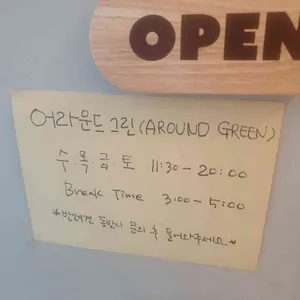 OPEN
어라운드 그린(AROUND GREEN)
수·목·금·토 11:30 - 20:00
Break Time 3:00 - 5:00
*반려견 동반시 문의 후 들어와주세요.*